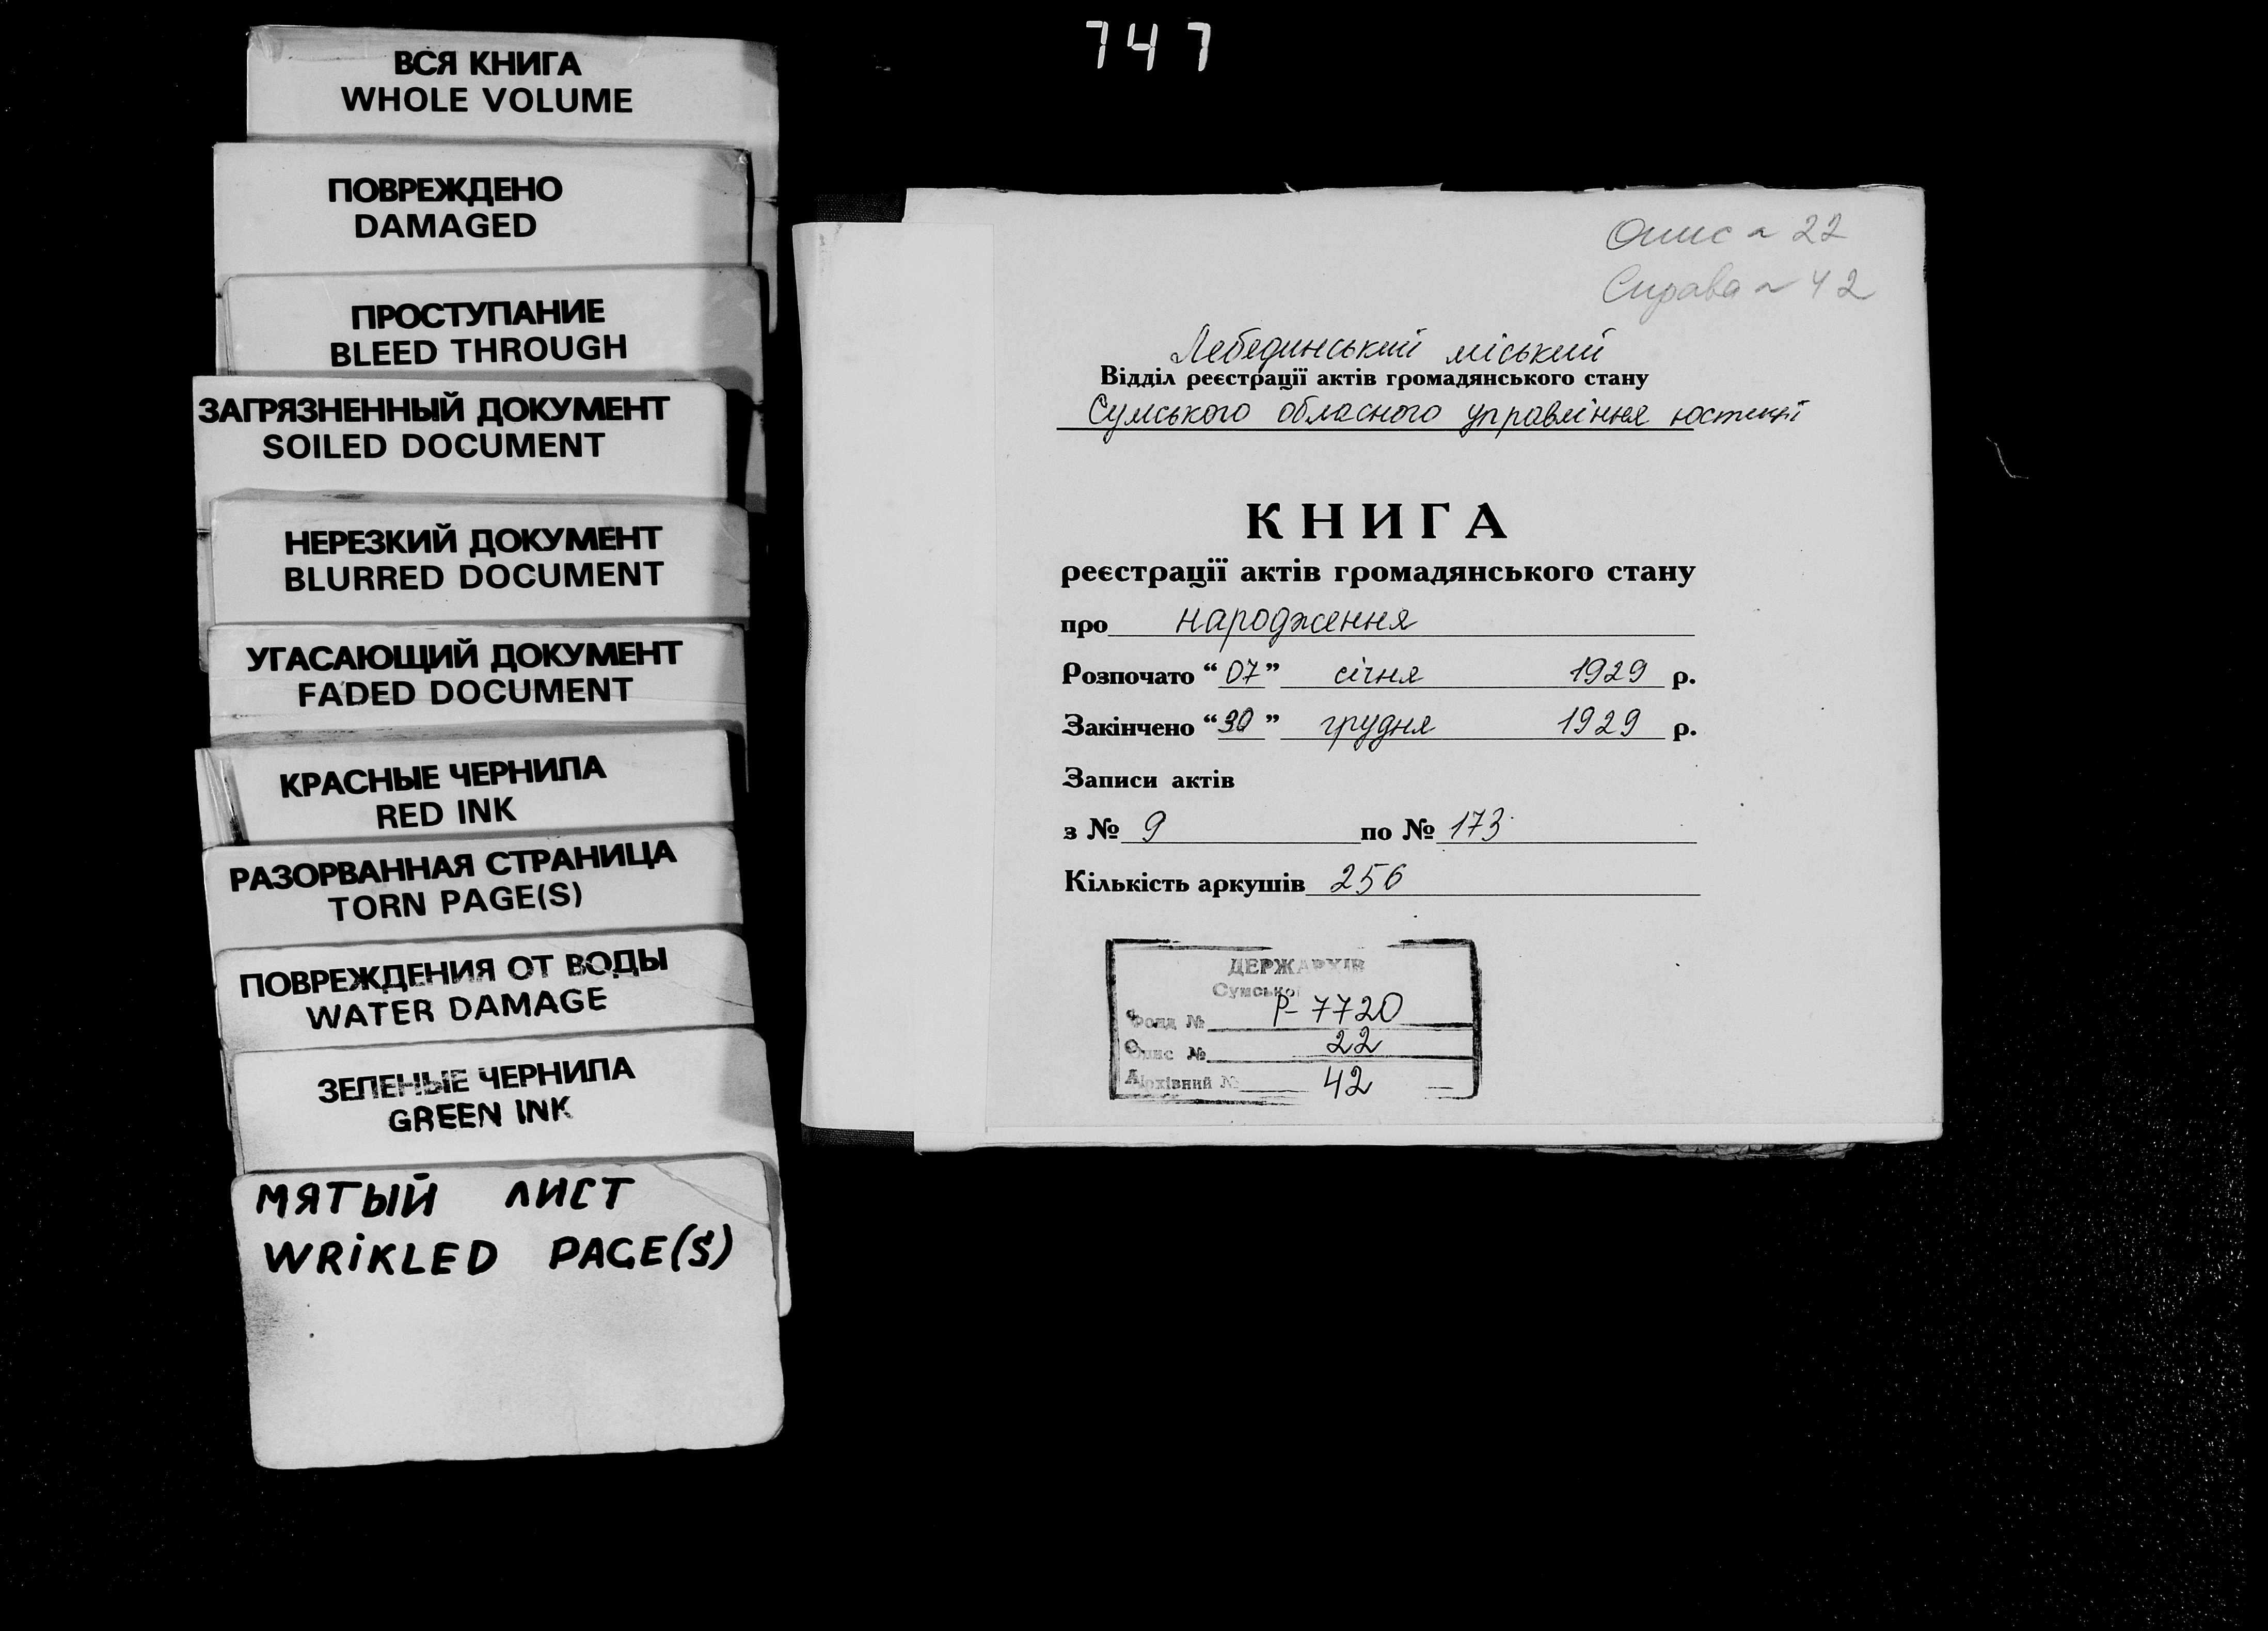 747
ВСЯ КНИГА
WHOLE VOLUME
ПОВРЕЖДЕНО
DAMAGED
ПРОСТУПАНИЕ
BLEED THROUGH
ЗАГРЯЗНЕННЫЙ ДОКУМЕНТ
SOILED DOCUMENT
НЕРЕЗКИЙ ДОКУМЕНТ
BLURRED DOCUMENT
УГАСАЮЩИЙ ДОКУМЕНТ
FADED DOCUMENT
КРАСНЫЕ ЧЕРНИЛА
RED INK
РАЗОРВАННАЯ СТРАНИЦА
TORN PAGE(S)
ПОВРЕЖДЕНИЯ ОТ ВОДЫ
WATER DAMAGE
ЗЕЛЕНЫЕ ЧЕРНИЛА
GREEN INK
МЯТЫЙ ЛИСТ
WRIKLED PAGE(S)
Опис ~ 22
Справа ~ 42
Лебединський міський
Відділ реєстрації актів громадянського стану
Сумського обласного управління юстиції
КНИГА
реєстрації актів громадянського стану
про народження
Розпочато “07” січня 1929 р.
Закінчено “30” грудня 1929 р.
Записи актів
з № 9 по № 173
Кількість аркушів 256
ДЕРЖАРХІВ
Сумської
Фонд № Р-7720
Опис № 22
Архівний № 42